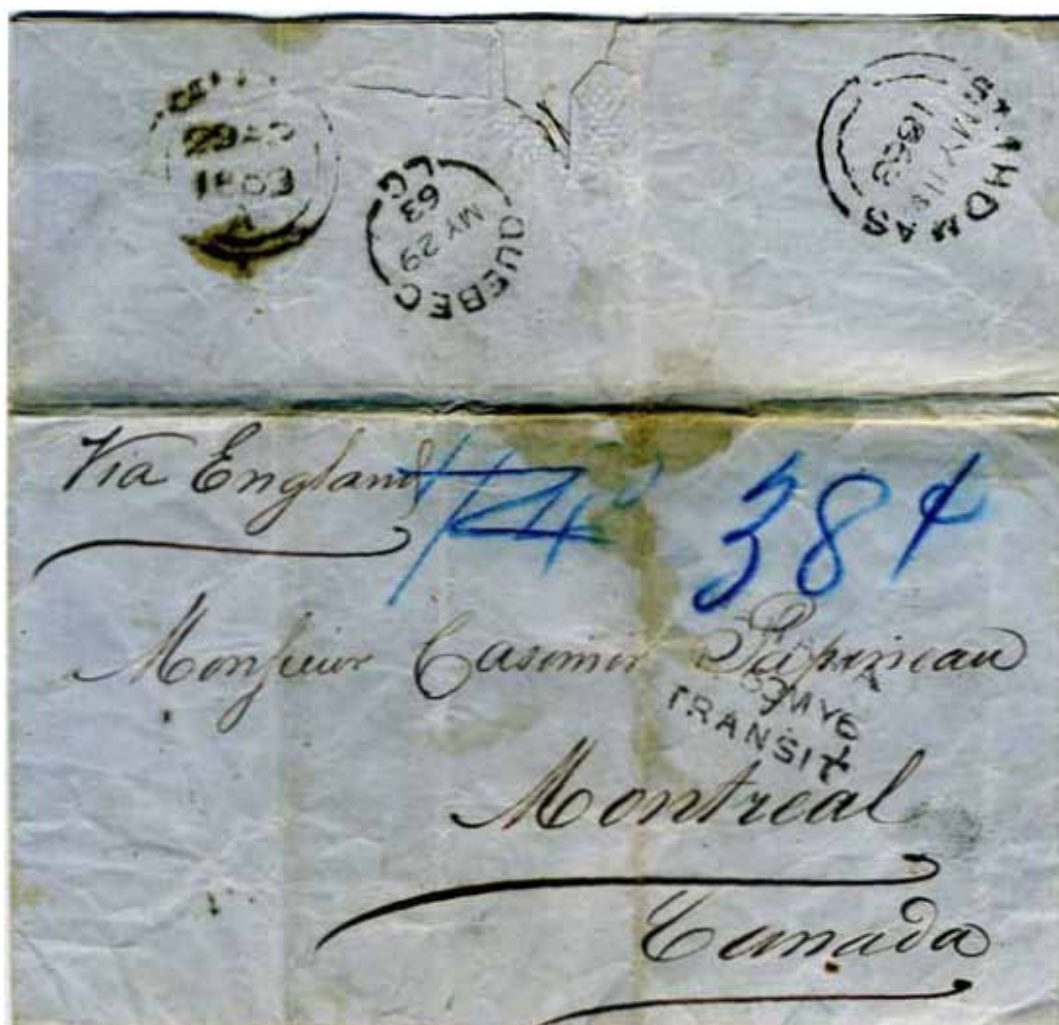 29 AP
1863
QUEBEC
MY 29
63
L C
ST THOMAS
MY
1863
Via England
38 ¢
Monsieur Casimir Papineau
MY 6
TRANSIT
Montreal
Canada